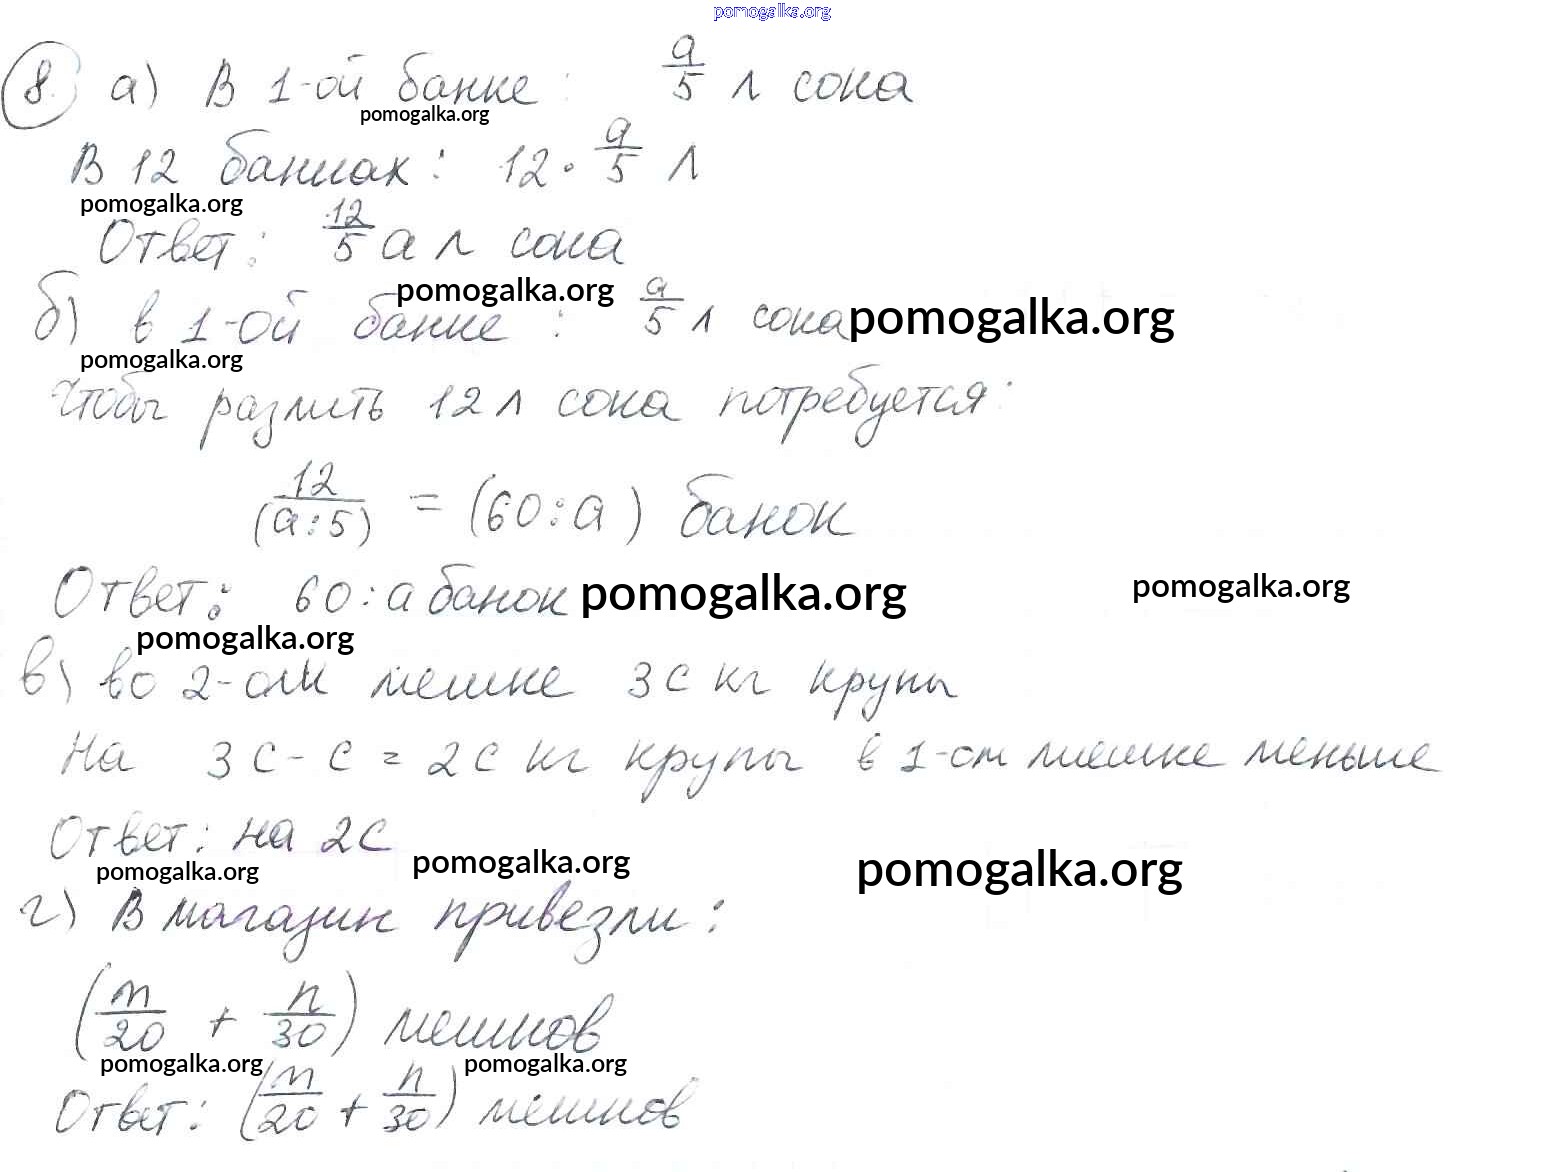 pomogalka.org
8. а) В 1-ой банке: a/5 л сока
pomogalka.org
В 12 банках: 12 · a/5 л
pomogalka.org
Ответ: 12/5 a л сока
pomogalka.org
б) в 1-ой банке: a/5 л сока pomogalka.org
pomogalka.org
Чтобы разлить 12 л сока потребуется:
12/(a:5) = (60:a) банок
Ответ: 60:a банок pomogalka.org pomogalka.org
pomogalka.org
в) во 2-ом мешке 3c кг крупы
На 3c - c = 2c кг крупы в 1-ом мешке меньше
Ответ: на 2c
pomogalka.org pomogalka.org pomogalka.org
г) В магазин привезли:
(m/20 + n/30) мешков
pomogalka.org pomogalka.org
Ответ: (m/20 + n/30) мешков